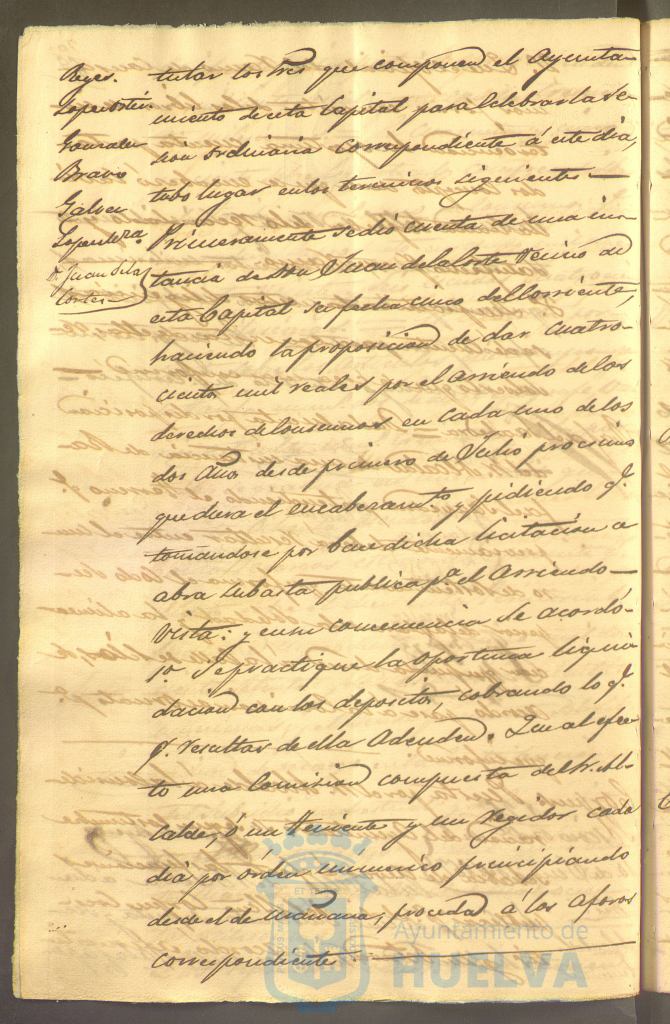 Reyes.
Lopez Ortiz
Gonzalez
Bravo
Galvez
Lopez
D. Juan de la
Cortes
tular los tres que componen el Ayunta-
miento de esta Capital para celebrar la se-
sion ordinaria correspondiente á este dia,
tubo lugar en los terminos sigientes —
Primeramente se dió cuenta de una ins-
tancia de Don Juan de la Corte Vecino de
esta Capital su fecha cinco del corriente,
haciendo la proposicion de dar cuatro-
cientos mil reales por el arriendo de los
derechos de consumos en cada uno de los
dos años desde primero de Julio procsimo
que dura el encabezam.to y pidiendo q.e
tomandose por base dicha licitacion se
abra subasta publica p.a el Arriendo —
Vista: y en su consecuencia se acordó-
1.º Se practique la oportuna liqui-
dacion con los depositos, cobrando lo q.e
p.r resultas de ella adeuden. Que al efec-
to una Comision compuesta del Sr. Al-
calde, ó un Teniente y un regidor cada
dia por órden numerico principiando
desde el de mañana, proceda á los aforos
correspondientes —
Ayuntamiento de
HUELVA